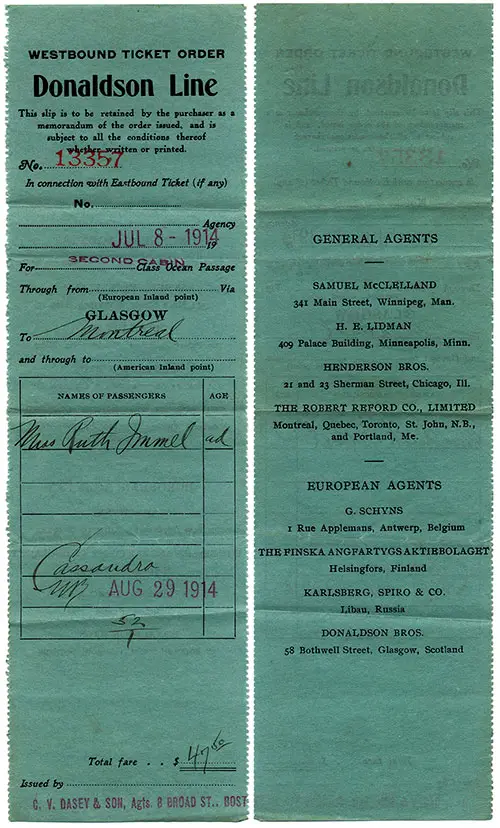 WESTBOUND TICKET ORDER
Donaldson Line
This slip is to be retained by the purchaser as a
memorandum of the order issued, and is
subject to all the conditions thereof
whether written or printed.
No. 13357
In connection with Eastbound Ticket (if any)
No.
Agency
JUL 8 - 1914 19
SECOND CABIN
For Class Ocean Passage
Through from Via
(European Inland point)
GLASGOW
To Montreal
and through to
(American Inland point)
NAMES OF PASSENGERS AGE
Miss Ruth Immel ad
Cassandra
WB AUG 29 1914
52
1
Total fare . . $ 47.50
Issued by
C. V. DASEY & SON, Agts. 8 BROAD ST., BOST
GENERAL AGENTS
SAMUEL McCLELLAND
341 Main Street, Winnipeg, Man.
H. E. LIDMAN
409 Palace Building, Minneapolis, Minn.
HENDERSON BROS.
21 and 23 Sherman Street, Chicago, Ill.
THE ROBERT REFORD CO., LIMITED
Montreal, Quebec, Toronto, St. John, N.B.,
and Portland, Me.
EUROPEAN AGENTS
G. SCHYNS
1 Rue Applemans, Antwerp, Belgium
THE FINSKA ANGFARTYGSAKTIEBOLAGET
Helsingfors, Finland
KARLSBERG, SPIRO & CO.
Libau, Russia
DONALDSON BROS.
58 Bothwell Street, Glasgow, Scotland